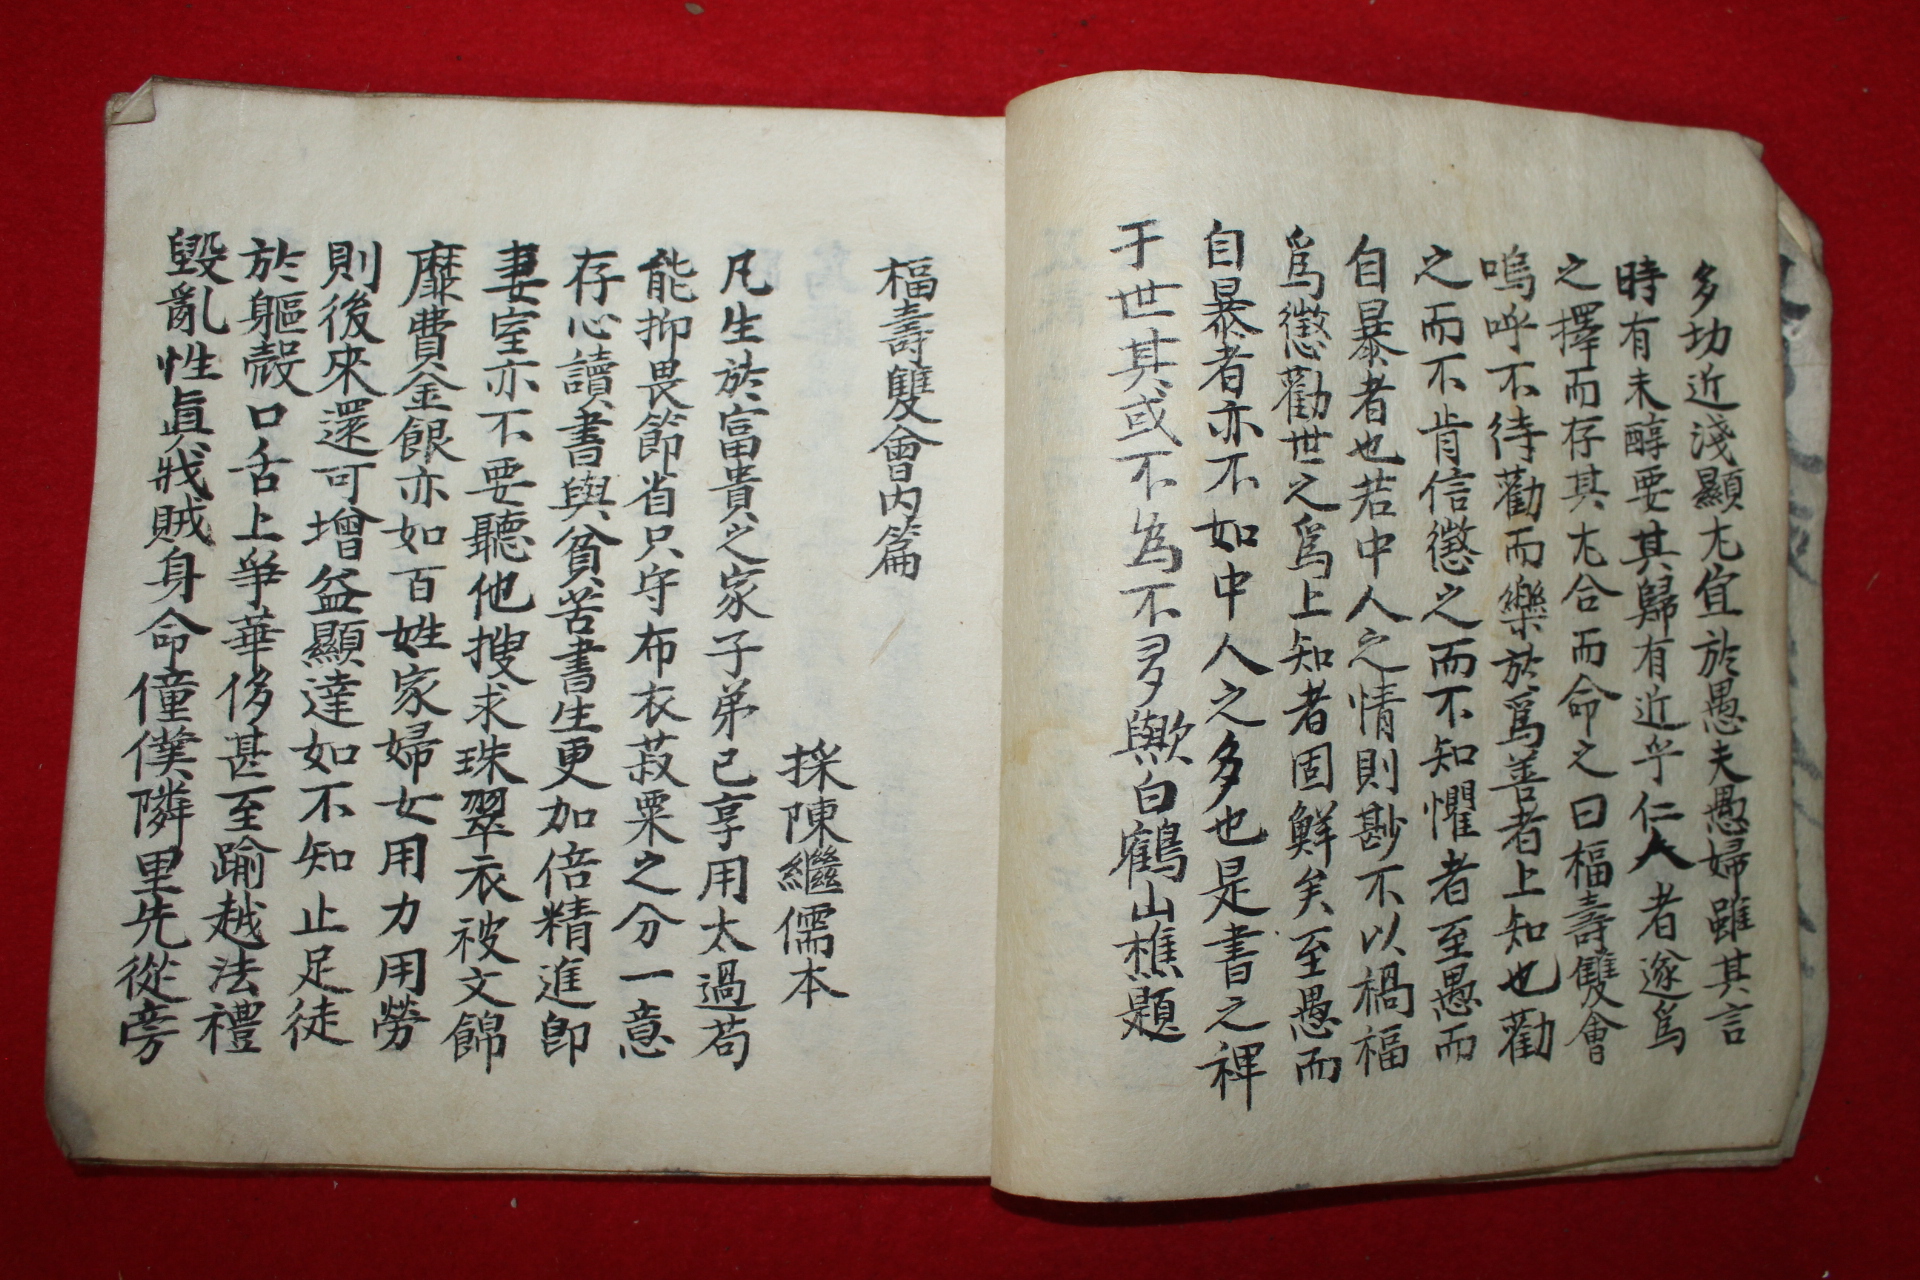 多切近淺顯尤宜於愚夫愚婦雖其言
時有未醇要其歸有近乎仁人者遂爲
之擇而存其尤合而命之曰福壽雙會
嗚呼不待勸而樂於爲善者上知也勸
之而不肯信懲之而不知懼者至愚而
自暴者也若中人之情則尠不以禍福
爲懲勸世之爲上知者固鮮矣至愚而
自暴者亦不如中人之多也是書之裨
于世其或不為不多歟白鶴山樵題
福壽雙會內篇
採陳繼儒本
凡生於富貴之家子弟已享用太過苟
能抑畏節省只守布衣菽粟之分一意
存心讀書與貧苦書生更加倍精進卽
妻室亦不要聽他搜求珠翠衣被文錦
靡費金銀亦如百姓家婦女用力用勞
則後來還可增益顯達如不知止足徒
於軀殼口舌上爭華侈甚至踰越法禮
毀亂性眞戕賊身命僮僕隣里先從旁